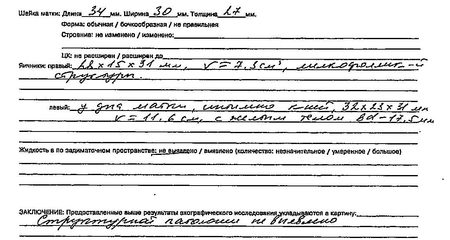 Шейка матки: Длина 34 мм. Ширина 30 мм. Толщина 27 мм.
Форма: обычная / бочкообразная / не правильная
Строение: не изменено / изменено:
ЦК: не расширен / расширен до
Яичники: правый: 22 х 15 х 31 мм, V = 7,3 см³, мелкофоллик-й
структуры.
левый: у дна матки, интимно к ней, 32 х 23 х 31 мм
V = 11,6 см, с желтым телом d - 17,5 мм
Жидкость в по задиматочном пространстве: не выявлено / выявлено (количество: незначительное / умеренное / большое)
ЗАКЛЮЧЕНИЕ: Предоставленные выше результаты эхографического исследования укладываются в картину:
Структурной патологии не выявлено